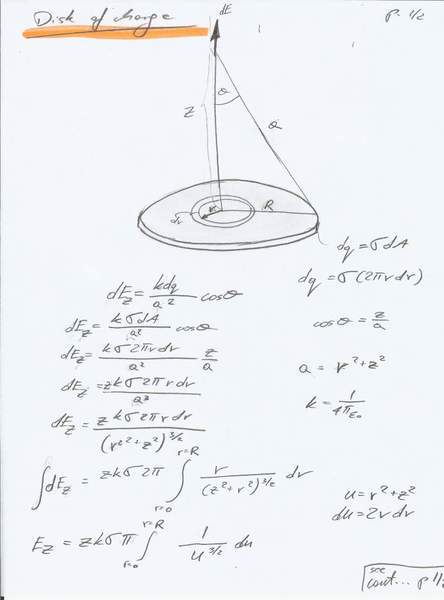 Disk of charge
p. 1/2
dE
z
θ
a
r
R
dr
dq = σdA
dq = σ(2πrdr)
dE_z = kdq/a² cosθ
cosθ = z/a
dE_z = kσdA/a² cosθ
dE_z = kσ2πrdr/a² z/a
a = r²+z²
dE_z = zkσ2πrdr/a³
k = 1/4πε₀
dE_z = zkσ2πrdr/(r²+z²)^3/2
∫dE_z = zkσ2π ∫_{r=0}^{r=R} r/(z²+r²)^3/2 dr
u = r²+z²
du = 2rdr
E_z = zkσπ ∫_{r=0}^{r=R} 1/u^3/2 du
see
cont... p 1/2